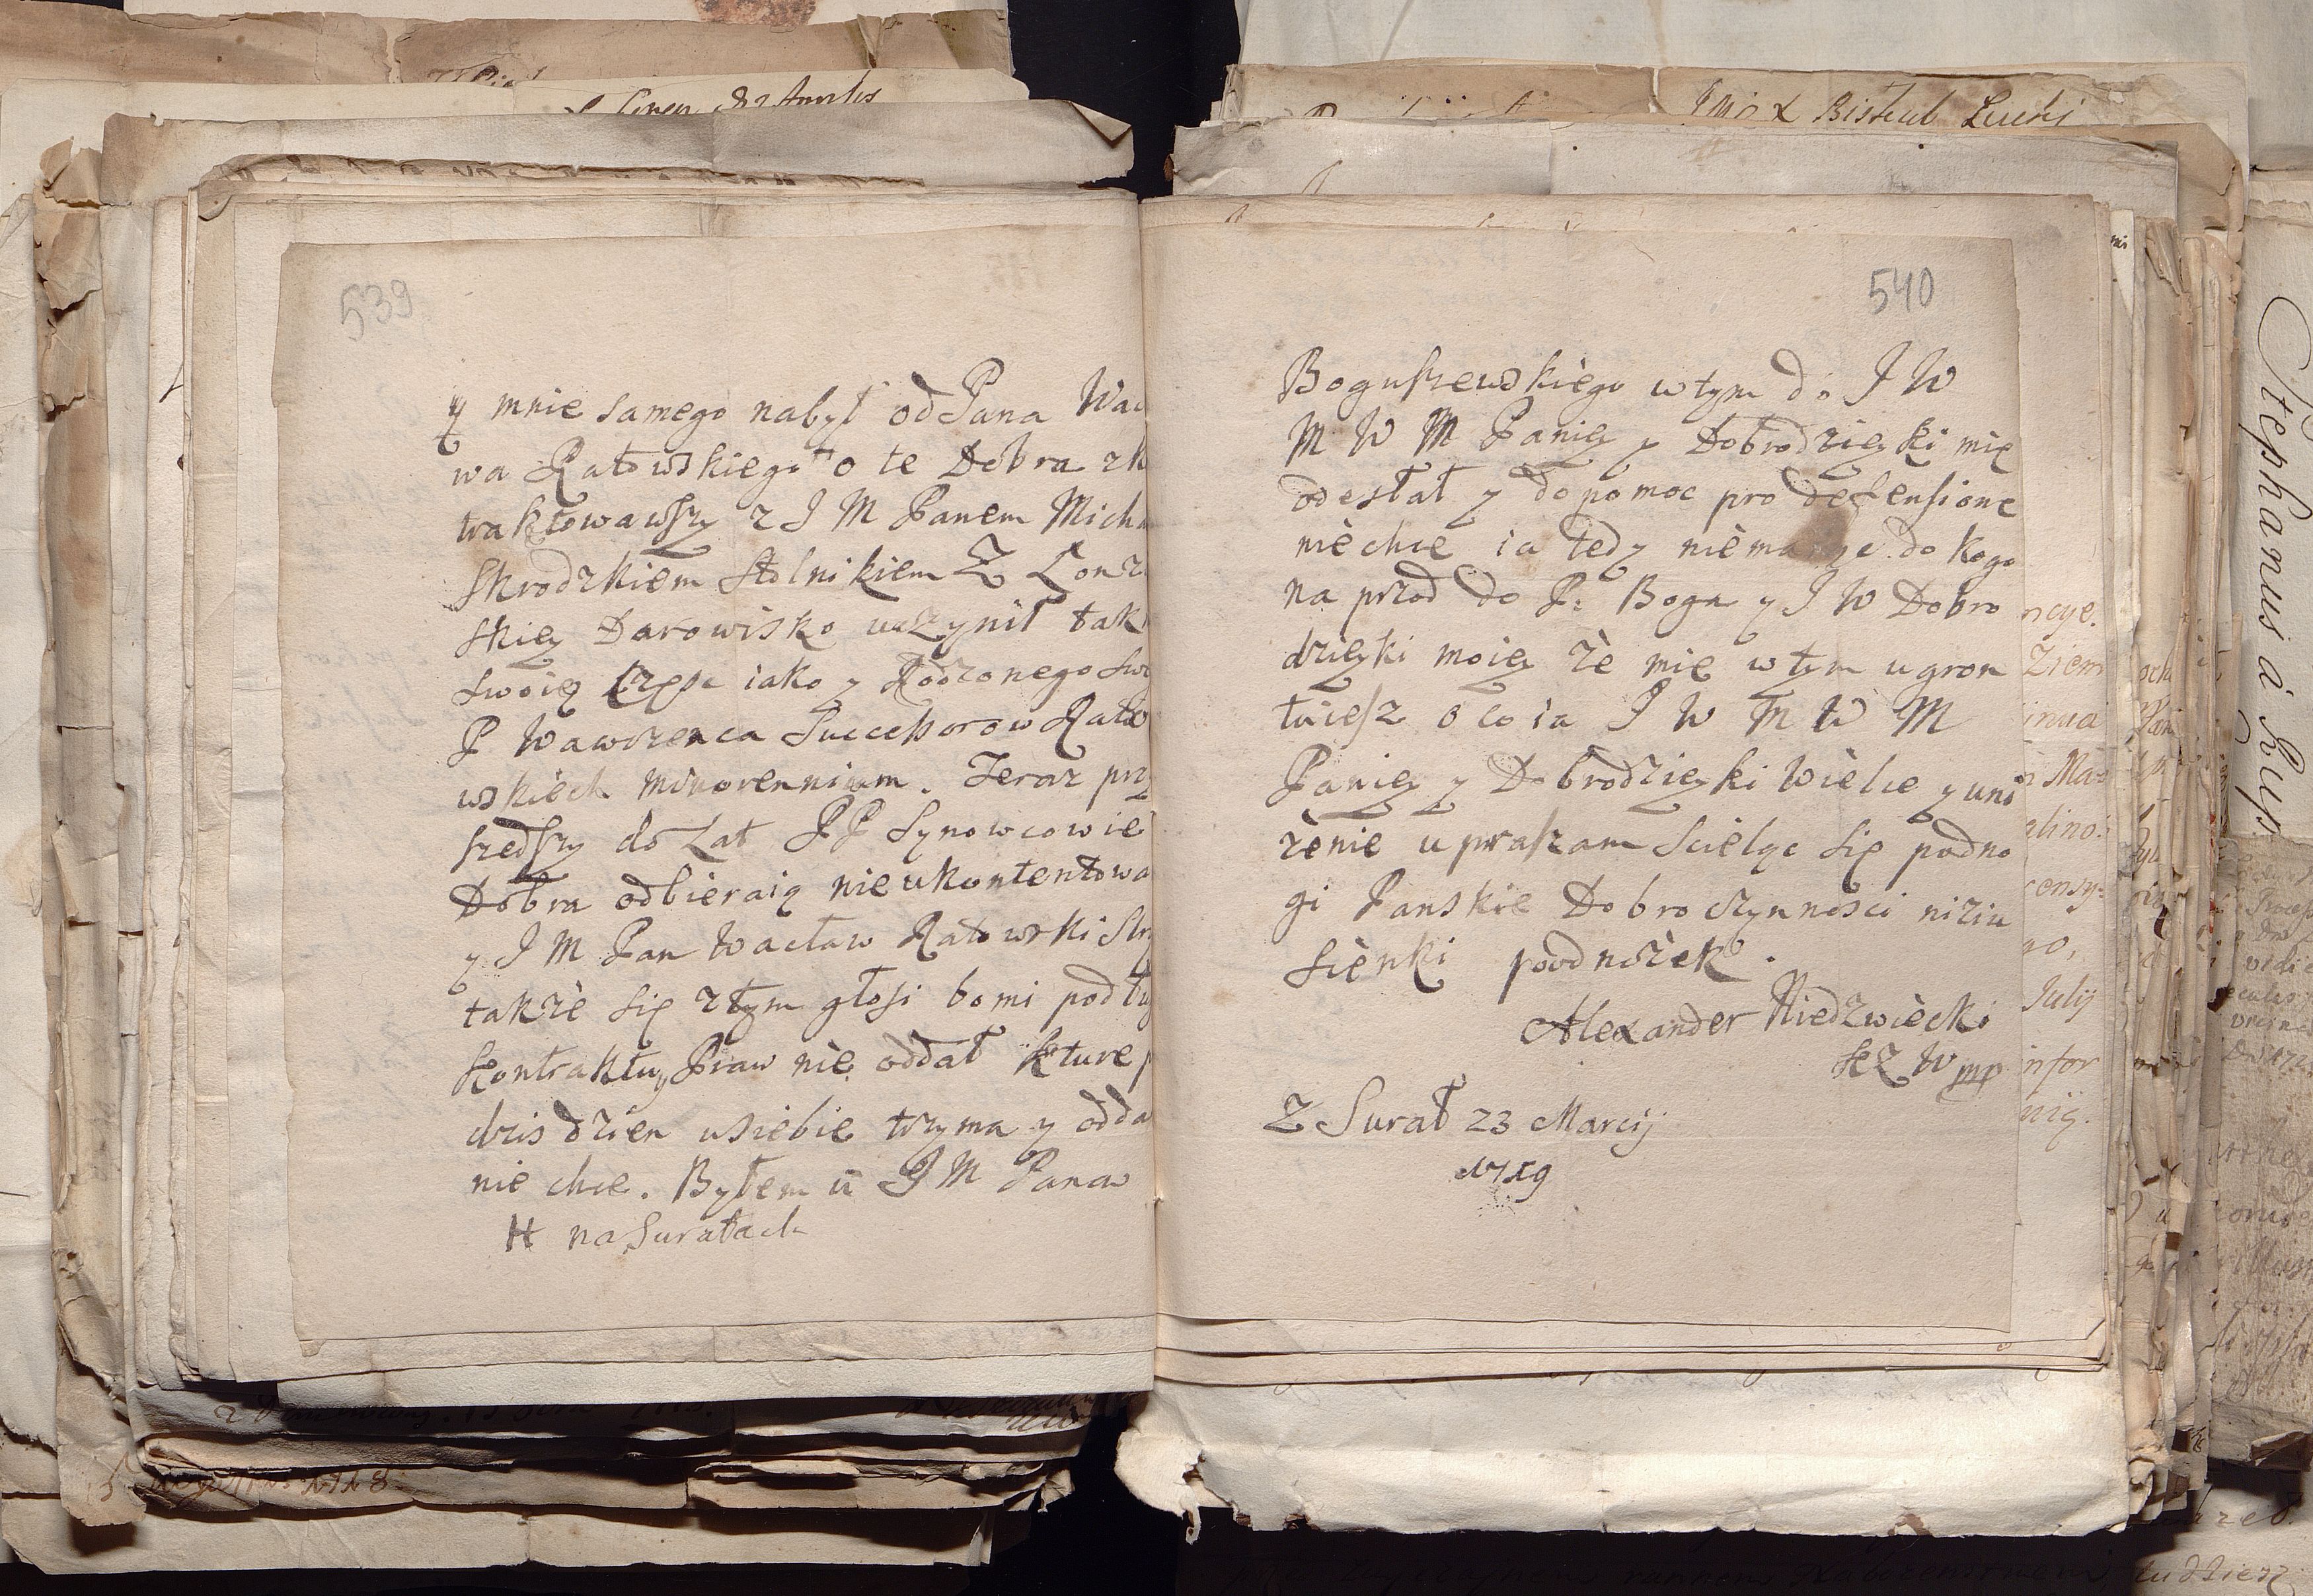 539
y mnie samego nabył od Pana Wac
wa Ratowskiego o te Dobra zk
traktowawszy z J M Panem Mich
Skrodzkiem Stolnikiem Z Łomz
skiey Darowisko uczynił tak
swoię częsc iako y Rodzonego Sw
P Wawrzenca Successorow Rato
wskiech minorennium. Teraz prz
szedszy do Lat PP Synowcowie
Dobra odbieraią nieukontentowa
y J M Pan Wacław Ratowski Str
takzè się ztym głosi bo mi podłu
Kontraktu Praw niè oddał kture p
dzis dzien usiebie trzyma y odda
nie chce. Byłem u J M Pana
H na Suratach
540
Boguszewskiègo wtym do J W
M W M Paniey y Dobrodzieyki mię
odesłał y do pomoc pro defensione
niè chce ia tedy nièmaiąc do kogo
na przod do P: Boga y J W Dobro
dzieyki moiey zè mię wtym ugron
tuiesz o co ia J W M W M
Paniey y Dobrodzieyki wièlce y uni
zènie upraszam Scieląc się podno
gi Panskie Dobroczynnosci niziu
siènki podnozèk.
Alexander Niedzwiècki
S Z W mp
Z Surat 23 Marcij
1719
J M X Biskub Lucki
ncye.
ziem
Ma=
alino:
consy=
Julij
infor
nią.
Stephanus à